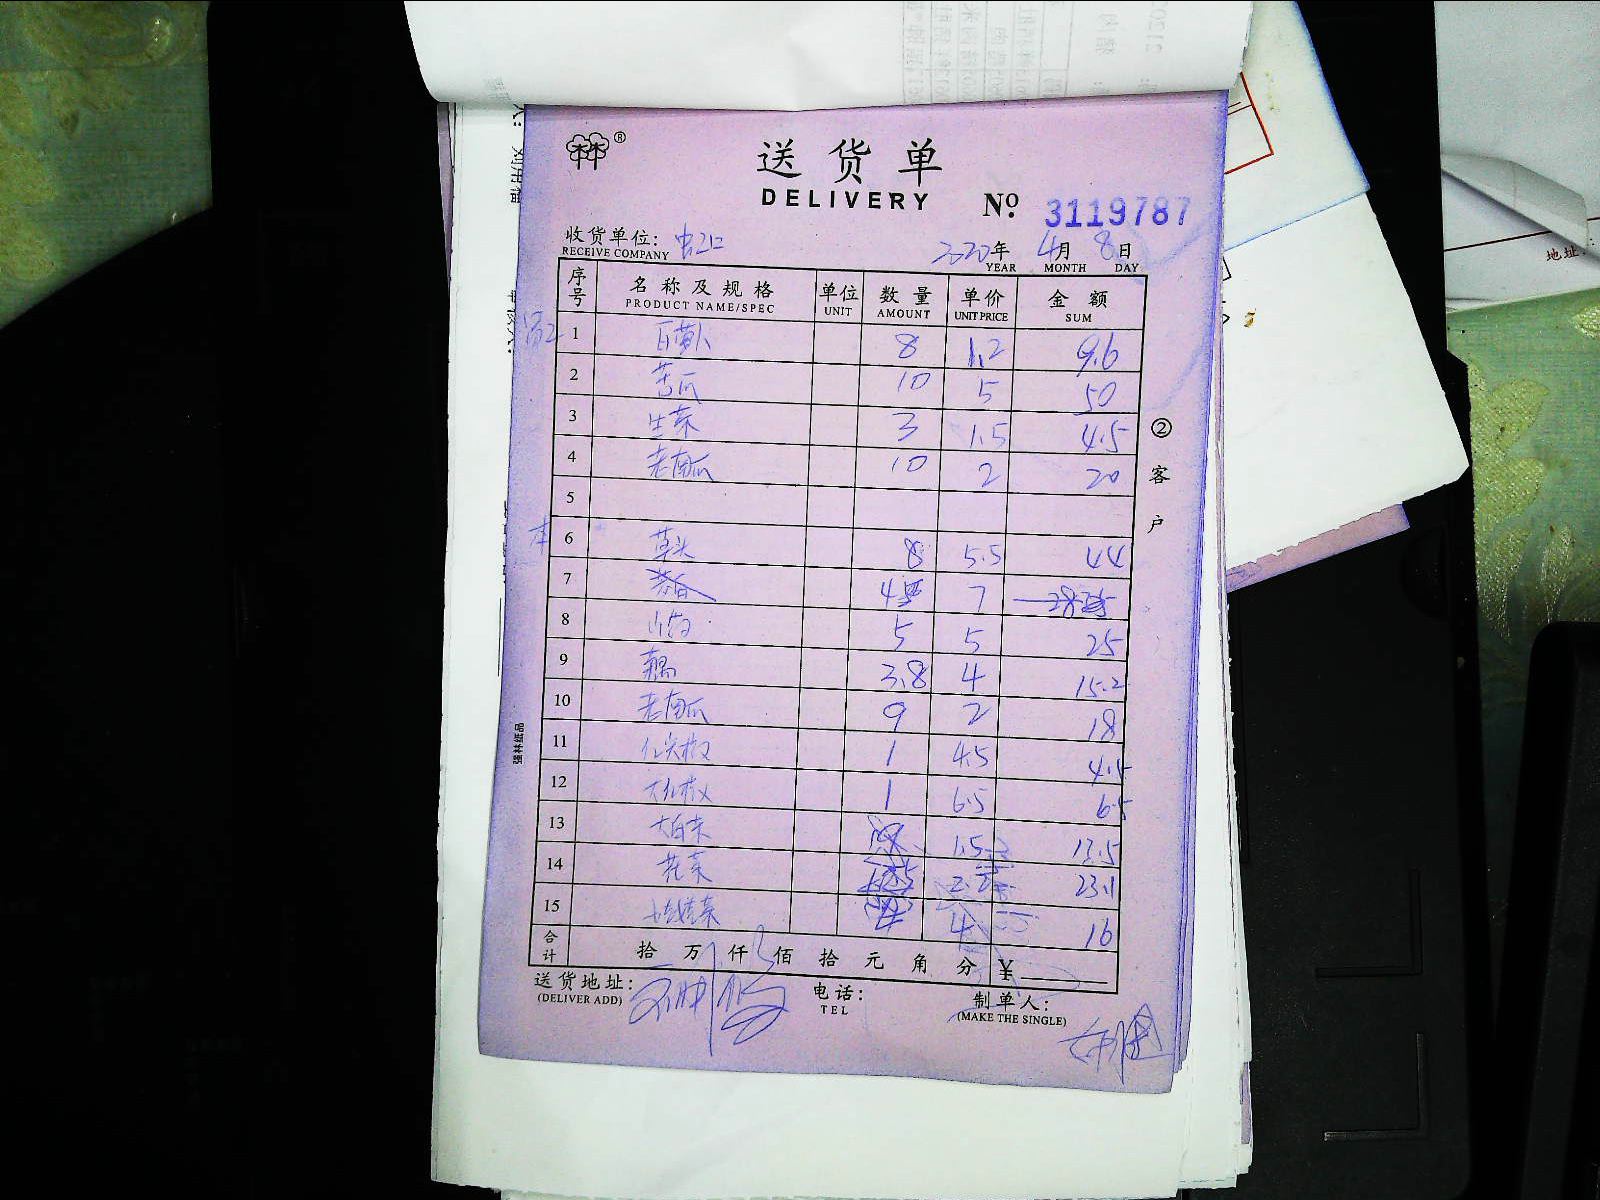 送货单
DELIVERY No. 3119787
收货单位: 虹口 2020年 4月 8日
RECEIVE COMPANY YEAR MONTH DAY
序号 名称及规格 单位 数量 单价 金额
PRODUCT NAME/SPEC UNIT AMOUNT UNIT PRICE SUM
1 白萝卜 8 1.2 9.6
2 苦瓜 10 5 50
3 生菜 3 1.5 4.5
4 老南瓜 10 2 20
5
本 6 草头 8 5.5 44
7 4 7 28
8 山药 5 5 25
9 藕 3.8 4 15.2
10 老南瓜 9 2 18
11 红尖椒 1 4.5 4.5
12 大红椒 1 6.5 6.5
13 大白菜 1.5 13.5
14 花菜 23.1
15 4 4 16
合计 拾 万 仟 佰 拾 元 角 分 ¥
送货地址: 电话: 制单人:
(DELIVER ADD) TEL (MAKE THE SINGLE)
②客户
强林纸品
地址: